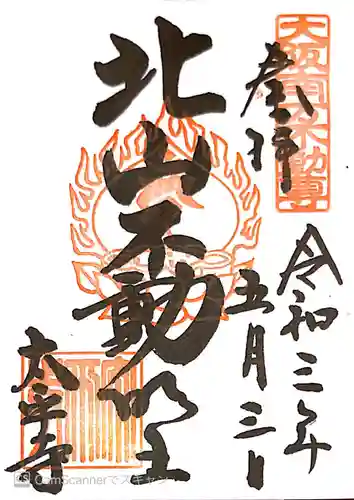 奉拝
令和三年
五月三日
北山不動明王
太平寺
CS CamScannerでスキャン